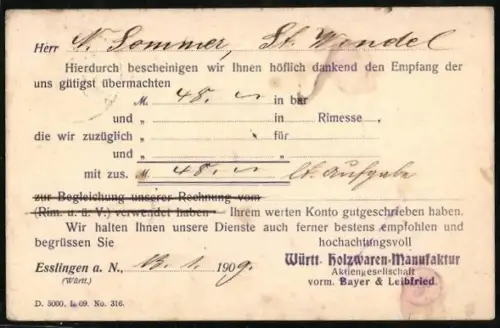 Herr N. Sommer, St. Wendel
Hierdurch bescheinigen wir Ihnen höflich dankend den Empfang der
uns gütigst übermachten
M. 48. ~ in bar
und „ in Rimesse,
die wir zuzüglich „ für
und „ „
mit zus. M. 48. ~ lt. Aufgabe
zur Begleichung unserer Rechnung vom
(Rim. u. ü. V.) verwendet haben Ihrem werten Konto gutgeschrieben haben.
Wir halten Ihnen unsere Dienste auch ferner bestens empfohlen und
begrüssen Sie hochachtungsvoll
Esslingen a. N., 13. 1. 1909. Württ. Holzwaren-Manufaktur
(Württ.) Aktiengesellschaft
vorm. Bayer & Leibfried.
D. 5000. I. 09. No. 316.